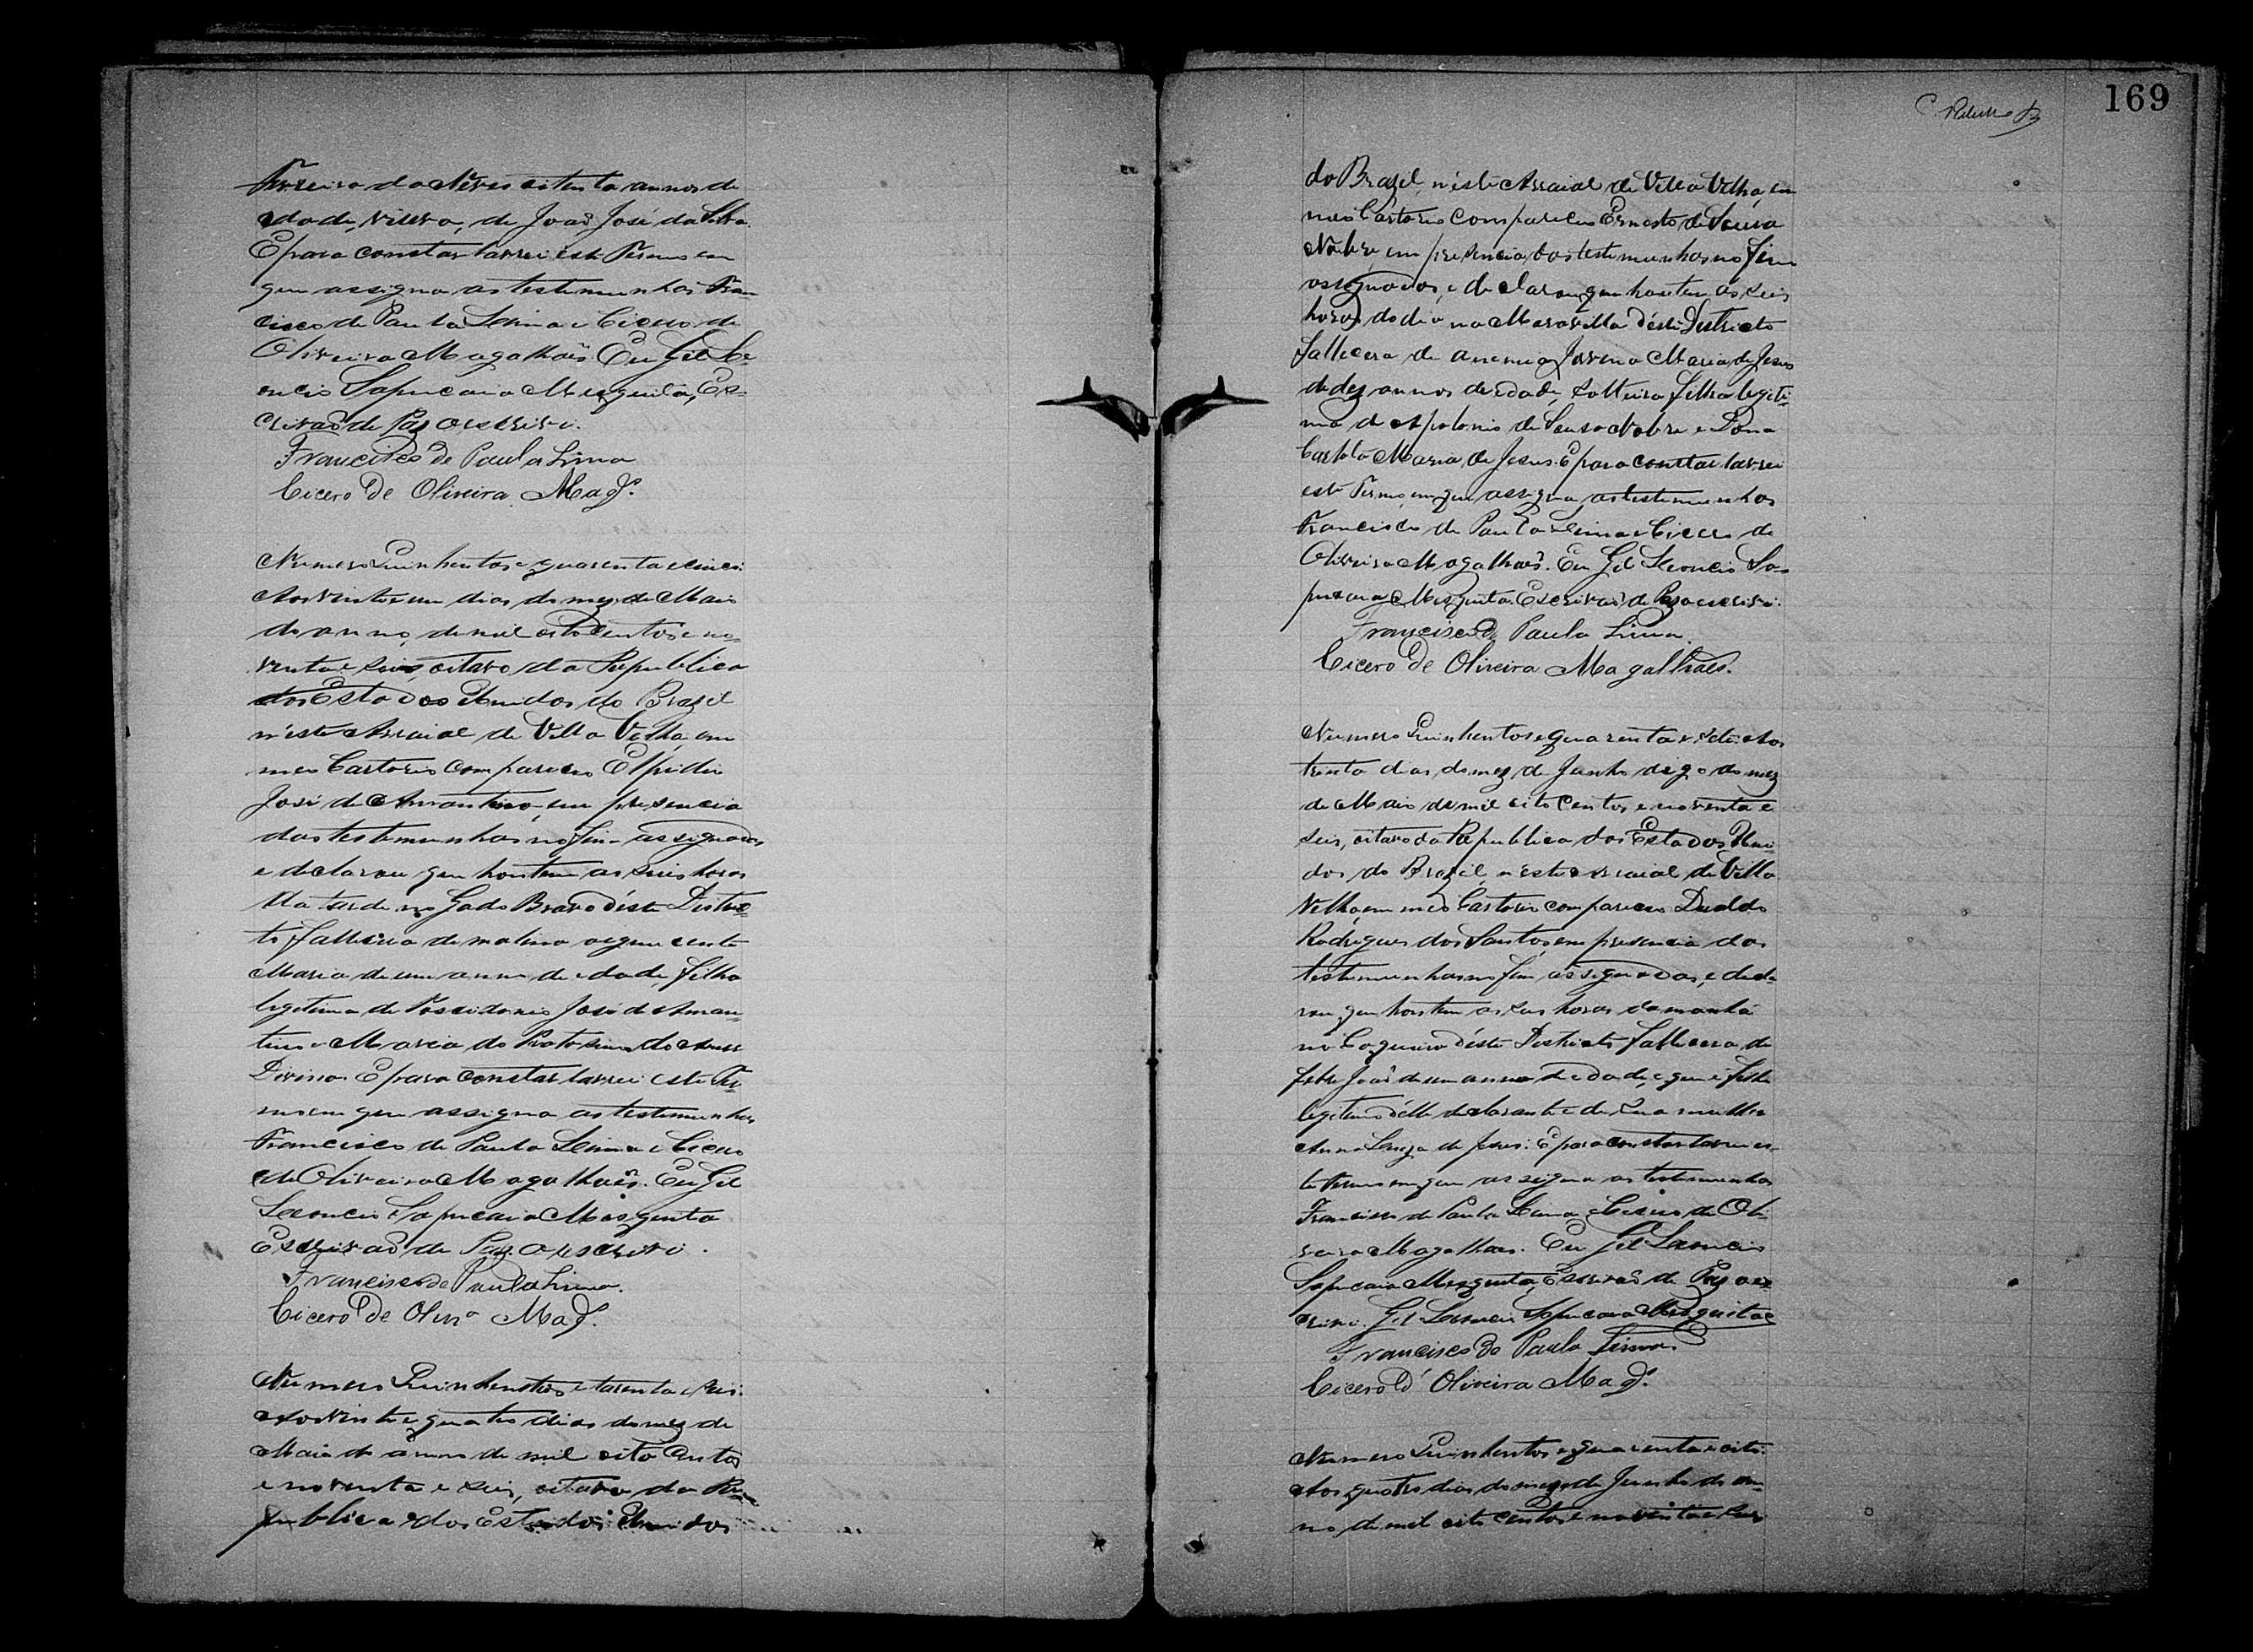 Ferreira da Neves oitenta annos de
edade, viuva, de João José da Silva.
E para constar lavrei este Termo em
que assigna as testemunhas Fran
cisco de Paula Lima e Cicero de
Oliveira Magalhaẽs Eu Gil Le
oncio Sapucaia Mesquita, Es-
crivaõ de Paz o escrivi.
Francisco de Paula Lima
Cicero de Oliveira Mags.
Numero Quinhentos e quarenta e cinco.
Aos vinte e um dias do mez de Maio
do anno de mil oito centos e no-
venta e seis, oitavo da Republica
dos Estados Unidos do Brazil
n'este Arraial de Villa Velha, em
meo Cartorio compareceo Elpidio
José de Amantino, em presencia
das testemunhas no fim assignadas
e declarou que hontem as seis horas
da tarde no Gado Bravo d'éste Distric-
to fallecera de molina
Maria de um anno de edade, filha
legitima de Possidonio José de Aman-
tino e Maria do
Divino. E para constar lavrei este Ter
mo em que assigna as testemunhas
Francisco de Paula Lima e Cicero
de Oliveira Magalhaẽs. Eu Gil
Leoncio Sapucaia Mesquita
Escrivaõ de Paz o escrivi.
Francisco de Paula Lima.
Cicero de Olivra Mags.
Numero Quinhentos e tarenta e seis.
Aos vinte e quatro dias do mez de
Maio do anno de mil oito centos
e noventa e seis, oitavo da Re-
publica dos Estados Unidos
169
do Brazil, n'éste Arraial de Villa Velha, em
meo Cartorio compareceu Ernesto de Souza
Nobre, em presencia das testemunhas no fim
assignados, e declarou que hontem as seis
horas do dia na Maravilha d'éste Districto
fallecera de anemia Jovena Maria de Jesus
de dez annos de edade, solteira filha legiti-
ma de Apolonio de Souza Nobre e Dona
Carlota Maria de Jesus. E para constar lavrei
este Termo em que assigna as testemunhas
Francisco de Paula Lima e Cicero de
Oliveira Magalhaẽs. Eu Gil Leoncio Sa-
pucaia Mesquita Escrivaõ de Paz o escrivi.
Francisco de Paula Lima.
Cicero de Oliveira Magalhaẽs.
Numero Quinhentos e quarenta e sete. Aos
trinta dias do mez de Junho digo do mez
de Maio de mil oito centos e noventa e
seis, oitavo da Republica dos Estados Uni-
dos do Brazil, n'este arraial de Villa
Velha, em meo Cartorio compareceu
Rodrigues dos Santos, em presencia das
testemunhas no fim assignadas, e decla-
rou que hontem as seis horas da manhã
no Coqueiro d'éste Districto fallecera de
febre João de um anno de edade, e que é filho
legitimo d'elle declarante e de sua mulher
Anna de Jesus. E para constar lavrei es-
te Termo em que assigna as testemunhas
Francisco de Paula Lima e Cicero de Oli-
veira Magalhaẽs. Eu Gil Leoncio
Sapucaia Mesquita, Escrivaõ de Paz o es-
crivi. Gil Leoncio Sapucaia Mesquita
Francisco de Paula Lima
Cicero d' Oliveira Mags.
Numero Quinhentos e quarenta e oito.
Aos quatro dias do mez de Junho do an-
no de mil oito centos e noventa e seis